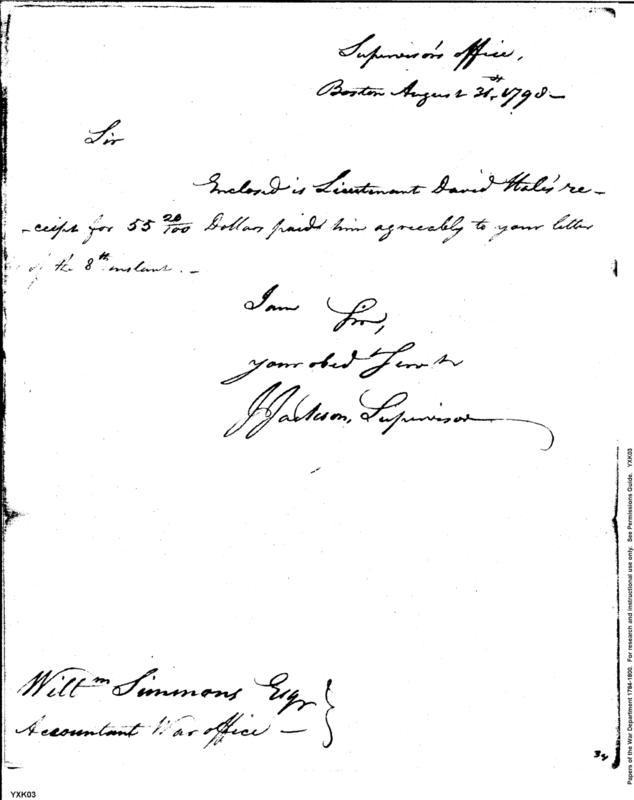 Supervisor's office,
Boston August 31st, 1798 —
Sir
Enclosed is Lieutenant David Hale's re-
-ceipt for 55 20/100 Dollars paid him agreeably to your letter
of the 8th instant. —
I am Sir,
your obedt Servt
J Jackson, Supervisor
Willm Simmons Esqr
Accountant War office —
YXK03
Papers of the War Department 1784-1800. For research and instructional use only. See Permissions Guide. YXK03